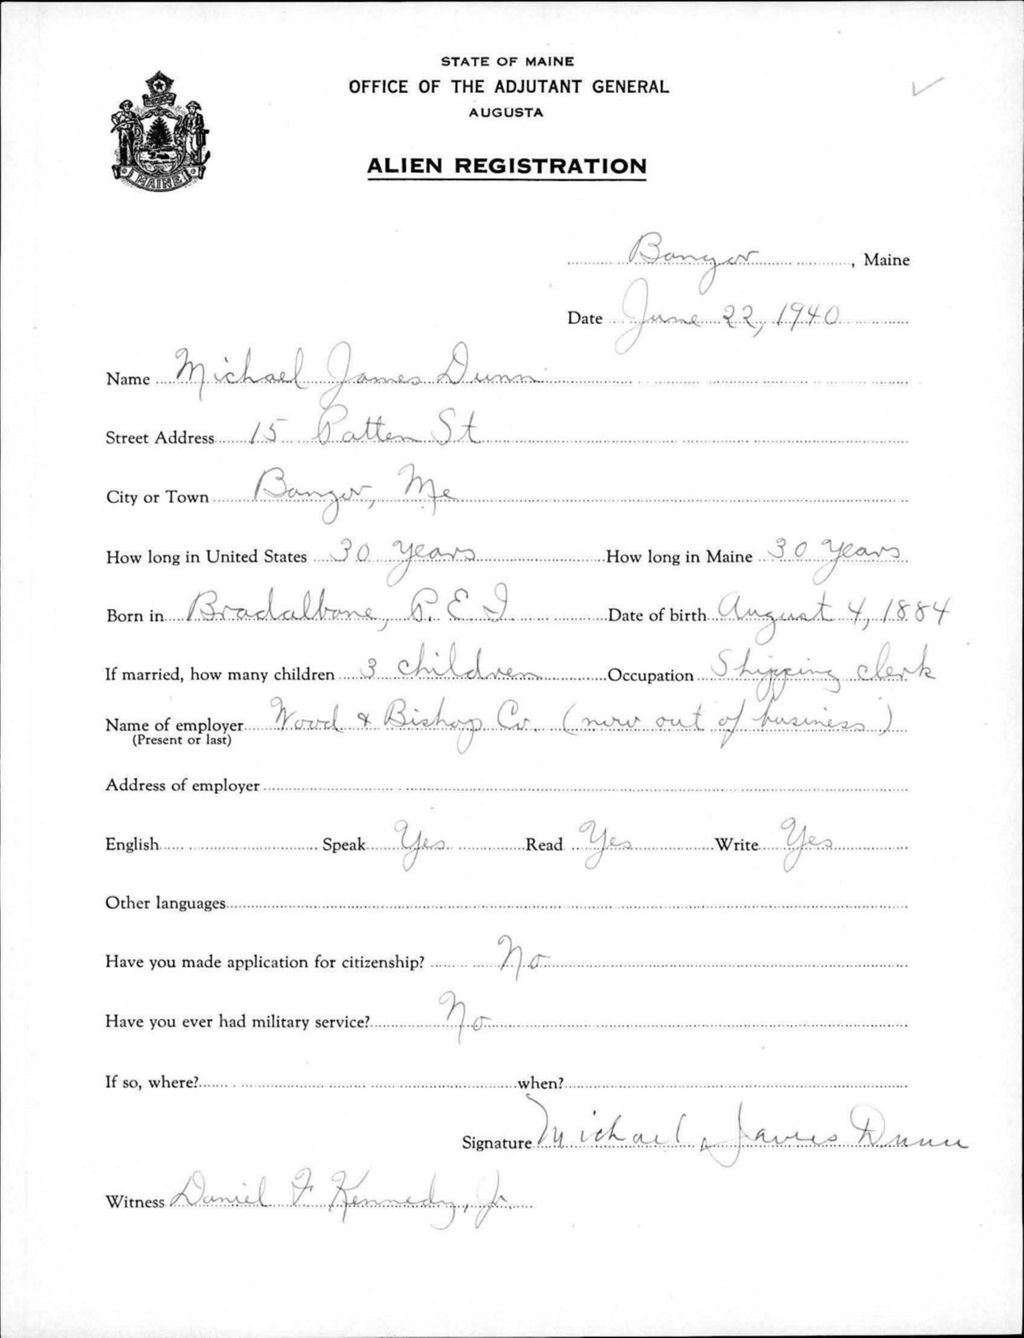 STATE OF MAINE
OFFICE OF THE ADJUTANT GENERAL
AUGUSTA
ALIEN REGISTRATION
MAINE
Bangor, Maine
Date June 22, 1940
Name Michael James Dunn
Street Address 15 Patten St
City or Town Bangor, Me
How long in United States 30 years How long in Maine 30 years
Born in Bradalbane, P. E. I Date of birth August 4, 1884
If married, how many children 3 children Occupation Shipping clerk
Name of employer Wood & Bishop Co. (now out of business)
(Present or last)
Address of employer
English Speak Yes Read Yes Write Yes
Other languages
Have you made application for citizenship? No
Have you ever had military service? No
If so, where? when?
Signature Michael James Dunn
Witness Daniel F Kennedy, Jr.